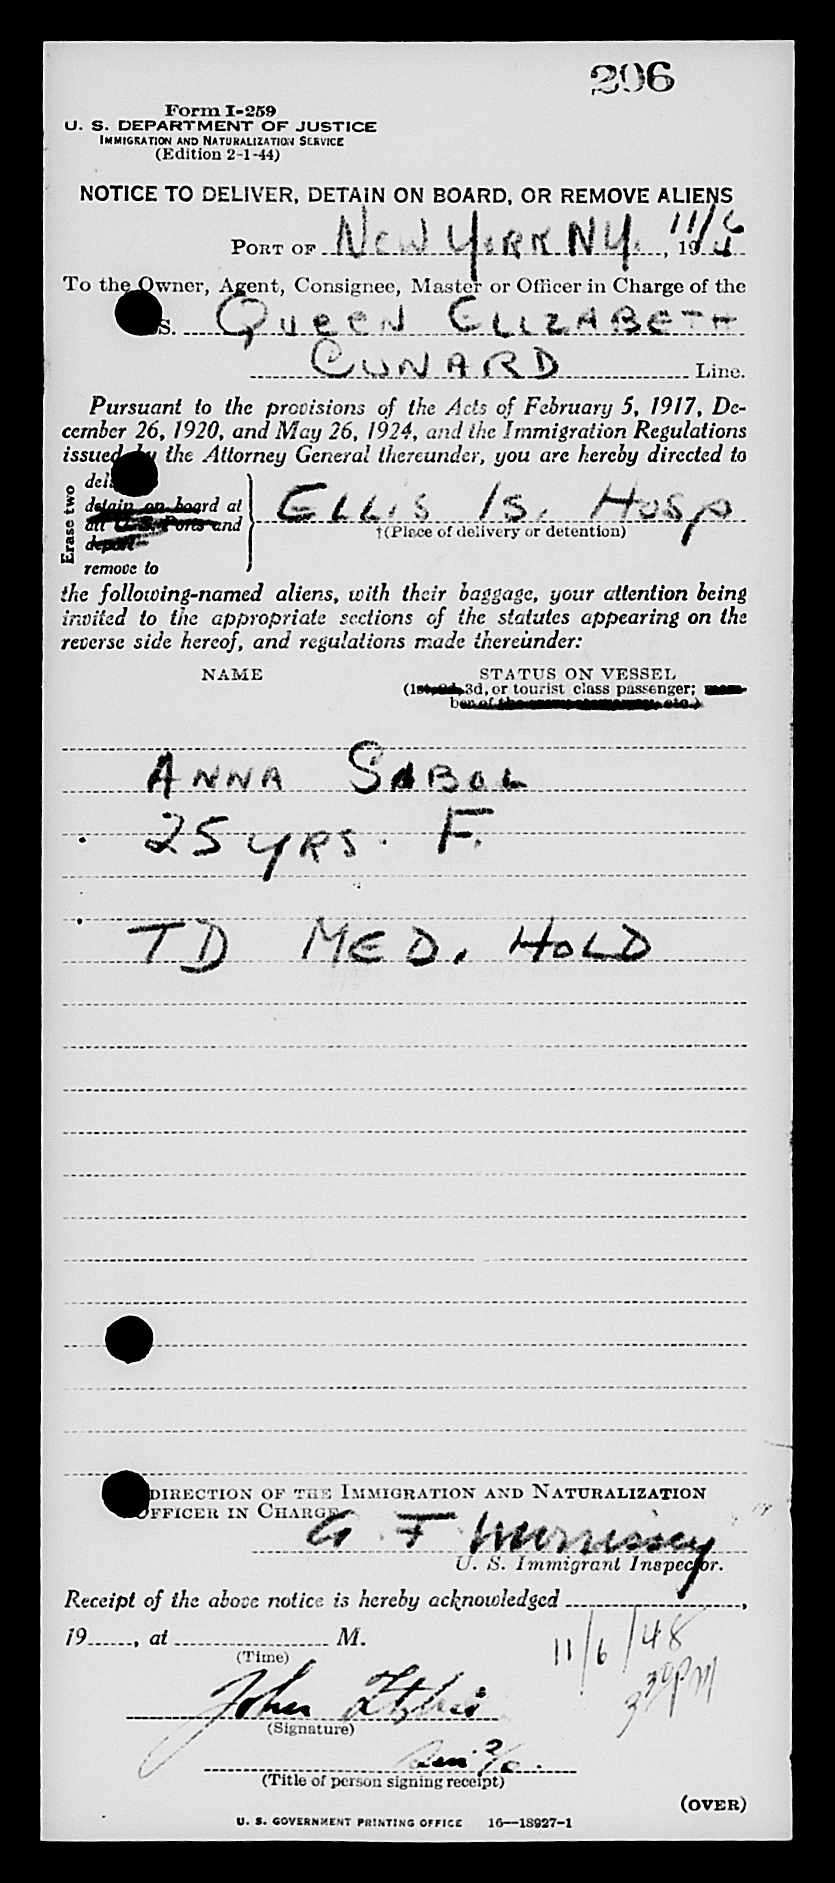 206
Form I-259
U. S. DEPARTMENT OF JUSTICE
IMMIGRATION AND NATURALIZATION SERVICE
(Edition 2-1-44)
NOTICE TO DELIVER, DETAIN ON BOARD, OR REMOVE ALIENS
PORT OF NEW YORK NY. 11/6, 19
To the Owner, Agent, Consignee, Master or Officer in Charge of the
S. QUEEN ELIZABETH
CUNARD Line.
Pursuant to the provisions of the Acts of February 5, 1917, De-
cember 26, 1920, and May 26, 1924, and the Immigration Regulations
issued by the Attorney General thereunder, you are hereby directed to
Erase two
detain on board at
all U. S. Ports and
deport
remove to
ELLIS IS. HOSP
†(Place of delivery or detention)
the following-named aliens, with their baggage, your attention being
invited to the appropriate sections of the statutes appearing on the
reverse side hereof, and regulations made thereunder:
NAME STATUS ON VESSEL
(1st, 2d, 3d, or tourist class passenger; mem-
ber of the
ANNA SABOL
25 YRS. F.
TD MED. HOLD
DIRECTION OF THE IMMIGRATION AND NATURALIZATION
OFFICER IN CHARGE
G F Morrissey
U. S. Immigrant Inspector.
Receipt of the above notice is hereby acknowledged ,
19 , at M.
(Time)
11/6/48
3 30 PM
John
(Signature)
(Title of person signing receipt)
(OVER)
U. S. GOVERNMENT PRINTING OFFICE 16—18927-1